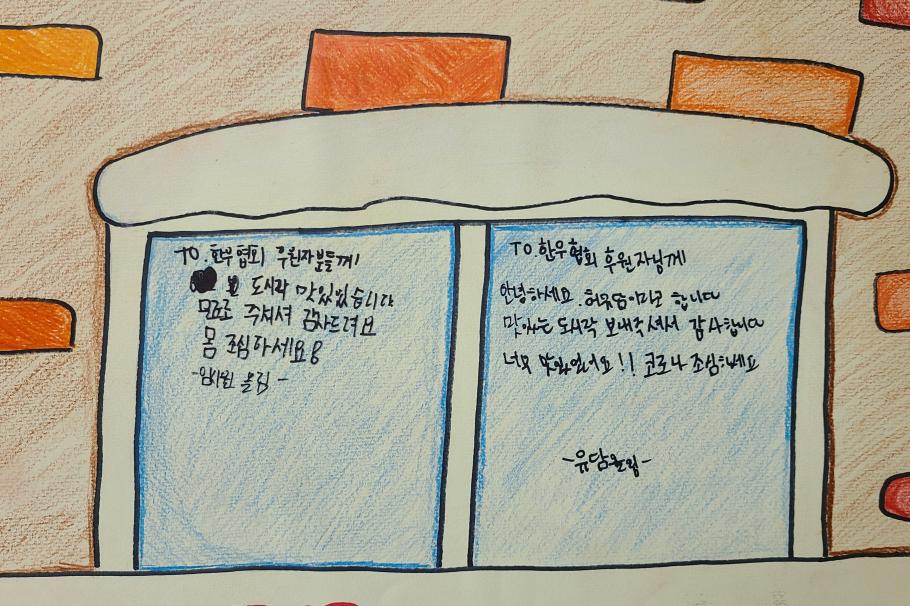 TO. 한우협회 후원자분들께!
도시락 맛있었습니다
주셔서 감사드려요
몸 조심하세요
올림 -
TO. 한우협회 후원자님께
안녕하세요. 합니다
맛있는 도시락 보내주셔서 감사합니다
너무 맛있었어요!! 코로나 조심하세요
-유담올림-